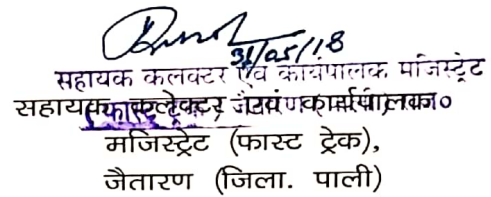 31/05/18
सहायक कलक्टर एवं कार्यपालक मजिस्ट्रेट
सहायक कलेक्टर एवं कार्यपालक
(फास्ट ट्रेक) जैतारण (पाली) राज०
मजिस्ट्रेट (फास्ट ट्रेक),
जैतारण (जिला. पाली)